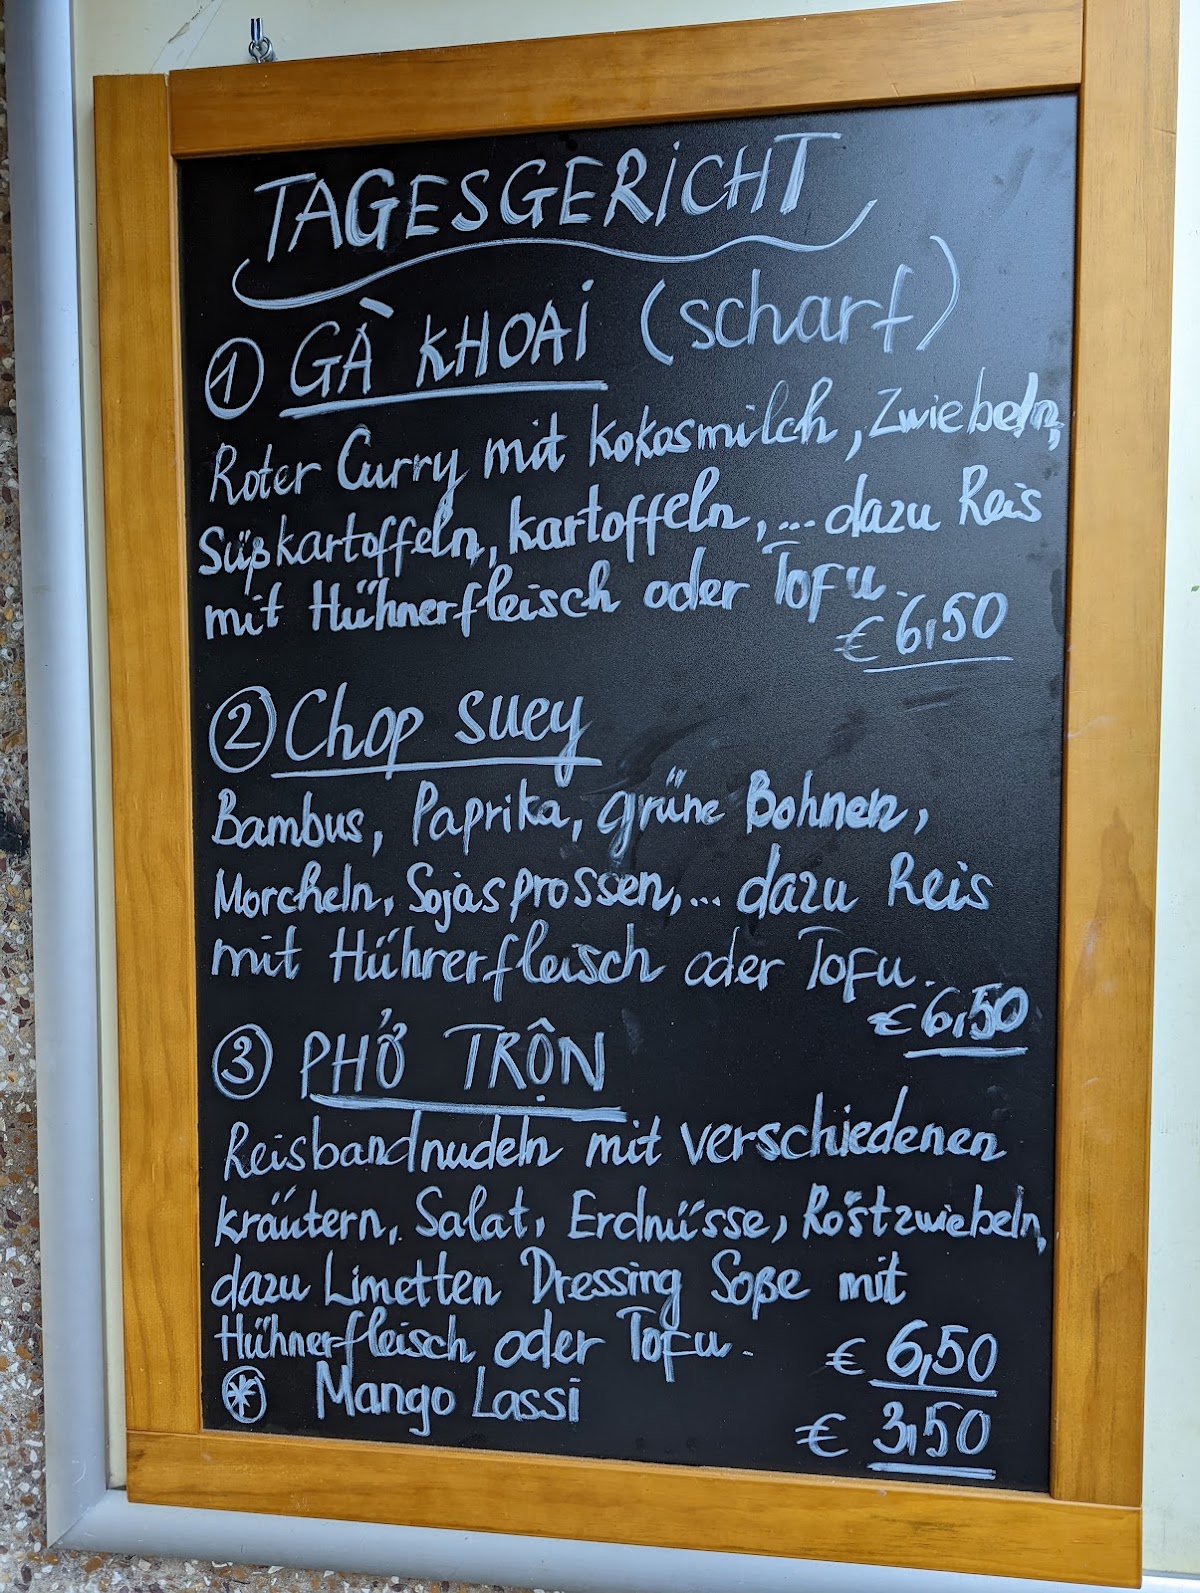 TAGESGERICHT
① GÀ KHOAI (scharf)
Roter Curry mit Kokosmilch, Zwiebeln,
Süßkartoffeln, Kartoffeln,... dazu Reis
mit Hühnerfleisch oder Tofu.
€ 6,50
② Chop Suey
Bambus, Paprika, grüne Bohnen,
Morcheln, Sojasprossen,... dazu Reis
mit Hühnerfleisch oder Tofu.
€ 6,50
③ PHỞ TRỘN
Reisbandnudeln mit verschiedenen
kräutern, Salat, Erdnüsse, Röstzwiebeln,
dazu Limetten Dressing Soße mit
Hühnerfleisch oder Tofu.
€ 6,50
* Mango Lassi
€ 3,50